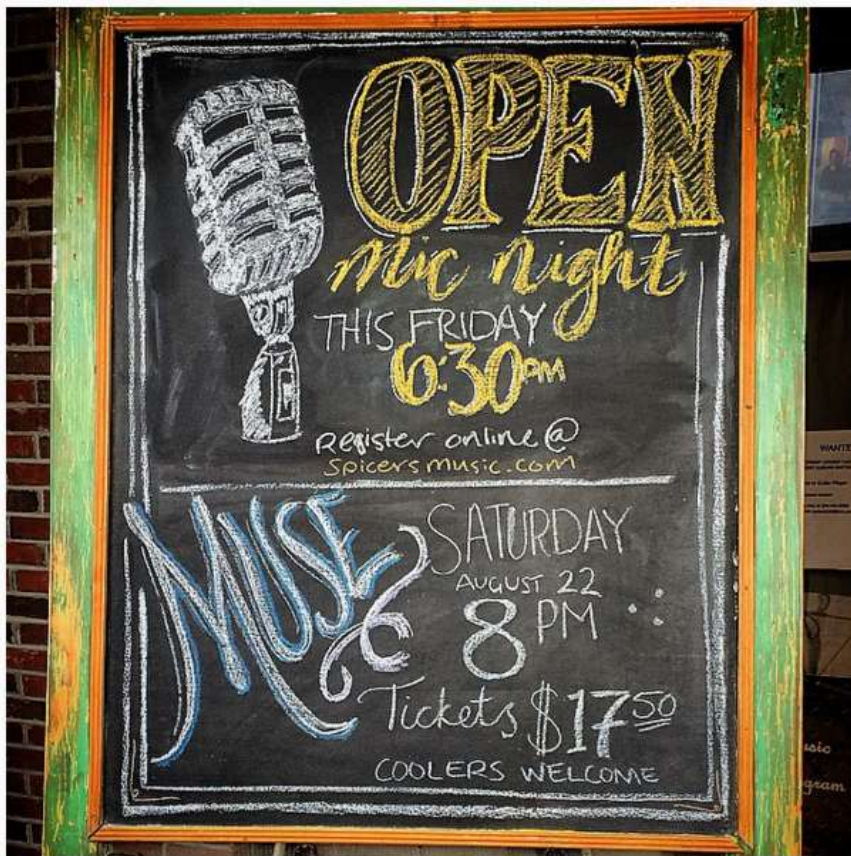 OPEN
mic night
THIS FRIDAY
6:30 PM
Register online @
spicersmusic.com
MUSE
SATURDAY
AUGUST 22
8 PM
Tickets $17 50
COOLERS WELCOME
WANTE
usic
gram